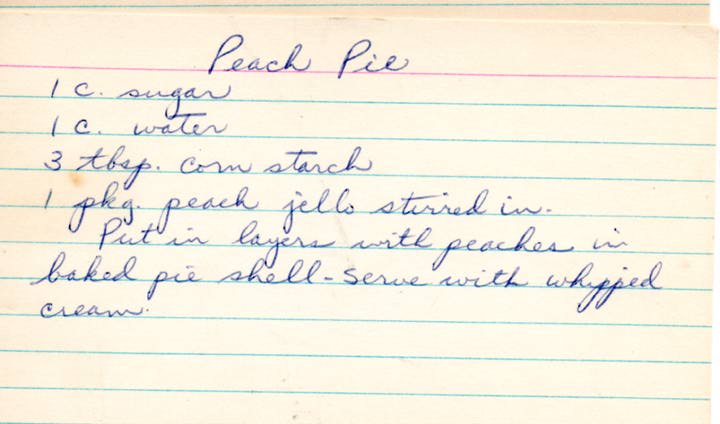 Peach Pie
1 c. sugar
1 c. water
3 tbsp. corn starch
1 pkg. peach jello stirred in.
Put in layers with peaches in
baked pie shell - serve with whipped
cream.